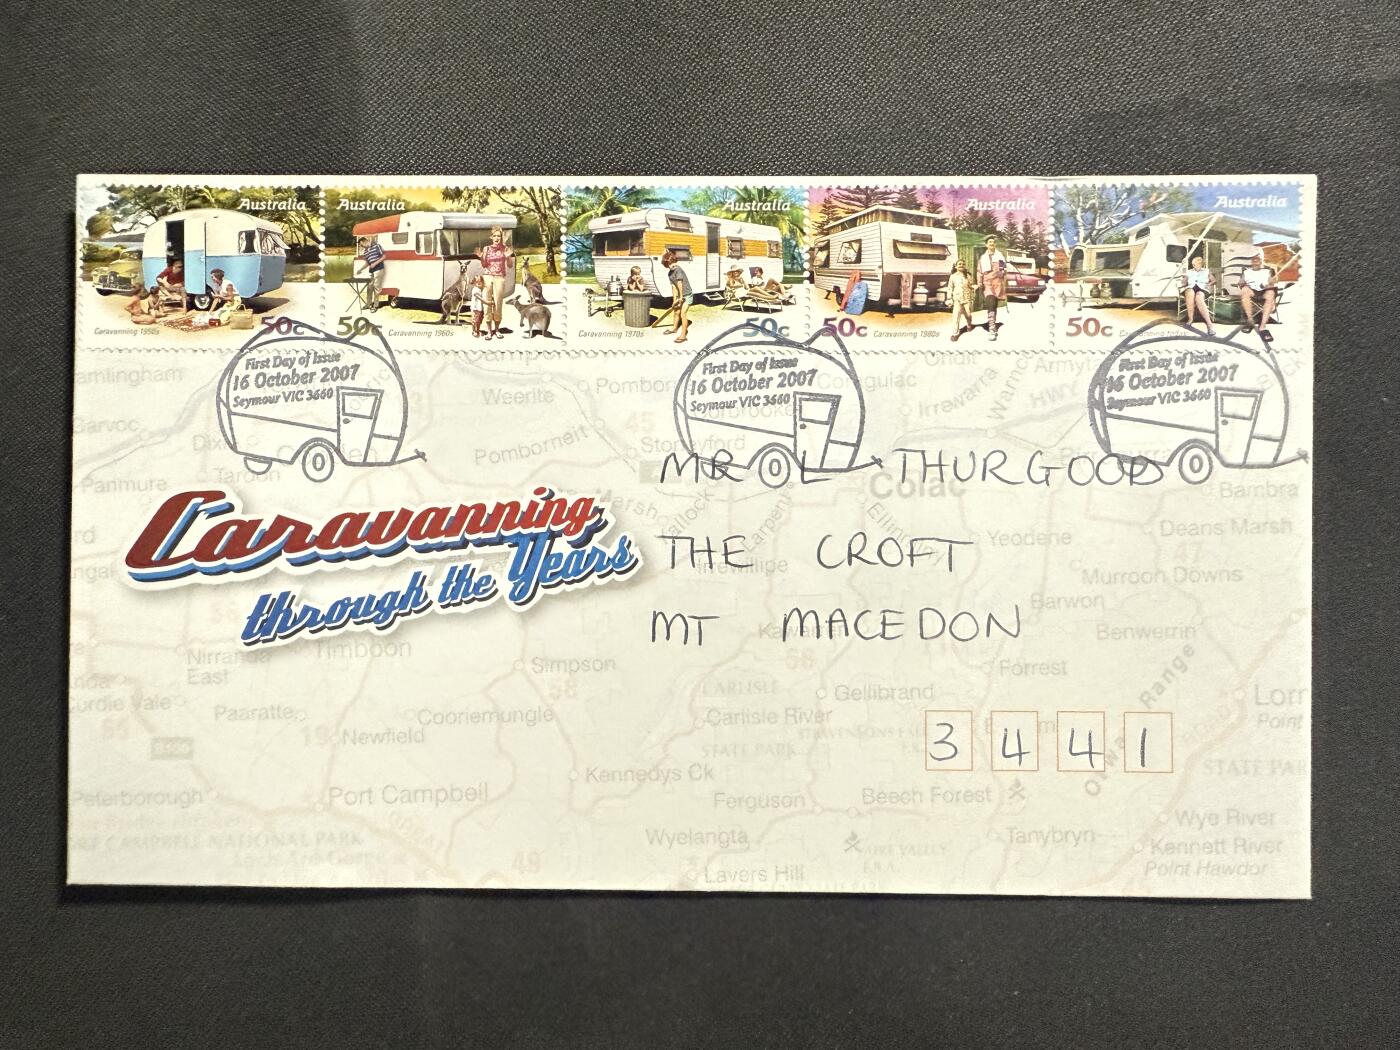 Australia
Caravanning 1950s 50c
Australia
50c Caravanning 1960s
Australia
Caravanning 1970s 50c
Australia
50c Caravanning 1980s
Australia
50c Caravanning today
First Day of Issue
16 October 2007
Seymour VIC 3660
First Day of Issue
16 October 2007
Seymour VIC 3660
First Day of Issue
16 October 2007
Seymour VIC 3660
MR O L THURGOOD
THE CROFT
MT MACEDON
3441
Caravanning
through the Years
Weerite
Pomborneit
Stoneyford
Irrewarra
Colac
Panmure
Bambra
Deans Marsh
Yeodene
47
Irrewillipe
Murroon Downs
Barwon
Benwerrin
Timboon
Simpson
Forrest
Nirranda
East
Gellibrand
CARLISLE
Carlisle River
STATE PARK
Curdie Vale
Paaratte
Cooriemungle
19
Newfield
Otway Range
Kennedys Ck
Peterborough
Port Campbell
Ferguson
Beech Forest
Wyelangta
Tanybryn
Wye River
Kennett River
Point Hawdon
49
Lavers Hill